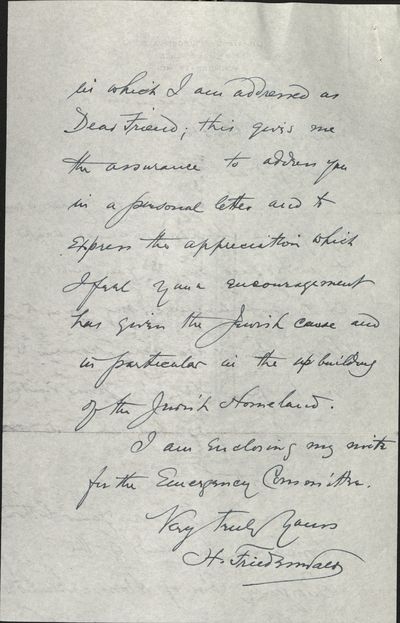 in which I am addressed as
Dear Friend; this gives me
the assurance to address you
in a personal letter and to
express the appreciation which
I feel your encouragement
has given the Jewish cause and
in particular in the upbuilding
of the Jewish Homeland.
I am enclosing my mite
for the Emergency Committee.
Very truly Yours
H. Friedenwald